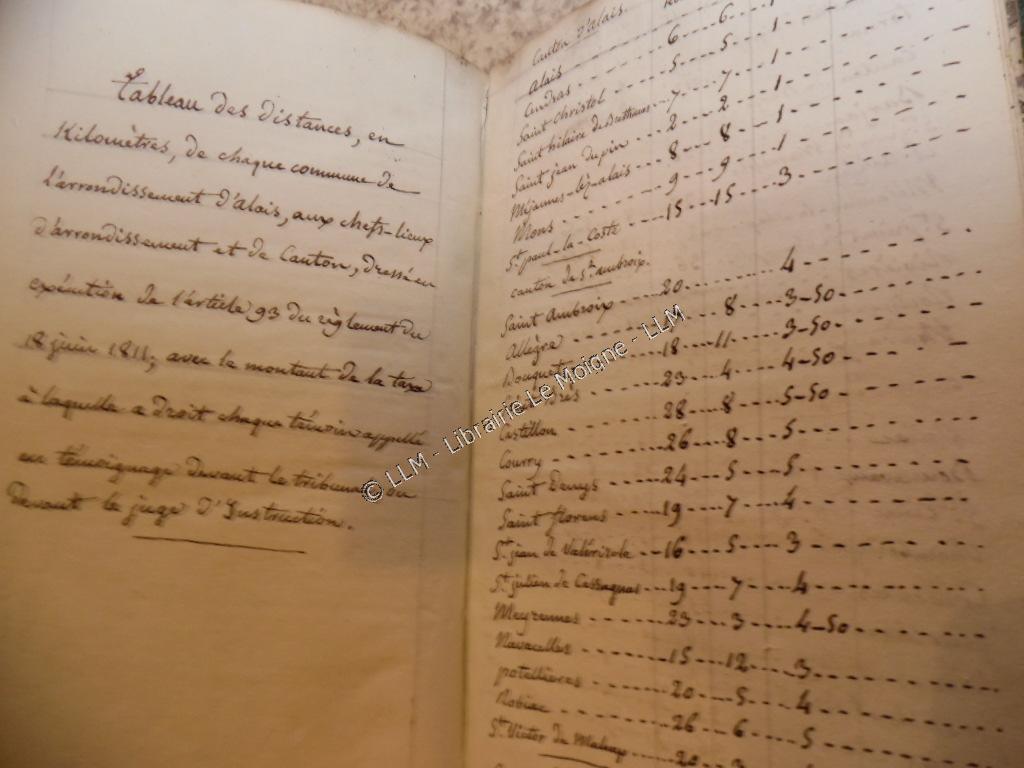 Tableau des distances, en
Kilomètres, de chaque commune de
l'arrondissement d'Alais, aux chefs-lieux
d'arrondissement et de Canton, dressé en
exécution de l'article 93 du règlement du
18 juin 1811, avec le montant de la taxe
à laquelle a droit chaque témoin appellé
en témoignage devant le tribunal ou
devant le juge d'Instruction.
Canton d'alais.
Alais
Cendras 6 6 1
Saint Christol 5 5 1
Saint hilaire de 7 7 1
Saint jean du pin 2 2 1
Méjannes-lez-alais 8 8 1
Mons 9 9 1
St. paul-la-Coste 15 15 3
canton de St. ambroix.
Saint Ambroix 20 4
Allègre 8 3-50
Bouquet 18 11 3-50
23 4 4-50
Castillon 28 8 5-50
Courry 26 8 5
Saint Denys 24 5 5
Saint florens 19 7 4
St. jean de Valériscle 16 5 3
St. julien de Cassagnas 19 7 4
Meyrannes 23 3 4-50
Navacelles 15 12 3
potellières 20 5 4
Robiac 26 6 5
St. Victor de Malcap 20
© LLM - Librairie Le Moigne - LLM